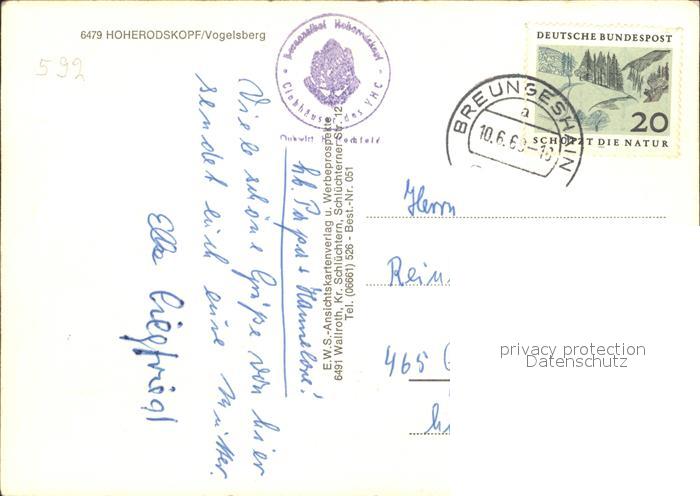 6479 HOHERODSKOPF/Vogelsberg
592
Clubhäuser des VHC
DEUTSCHE BUNDESPOST
20
SCHÜTZT DIE NATUR
BREUNGESHAIN
a
10.6.69-16
lb. Papa + Hannelore!
Viele schöne Grüße von hier
sendet euch eure Mutter.
Elke Siegfried
E.W.S.-Ansichtskartenverlag u. Werbeprospekte
6491 Wallroth, Kr. Schlüchtern, Schlüchterner Str. 12
Tel. (06661) 526 - Best.-Nr. 051
Herrn
Rein
465
privacy protection
Datenschutz